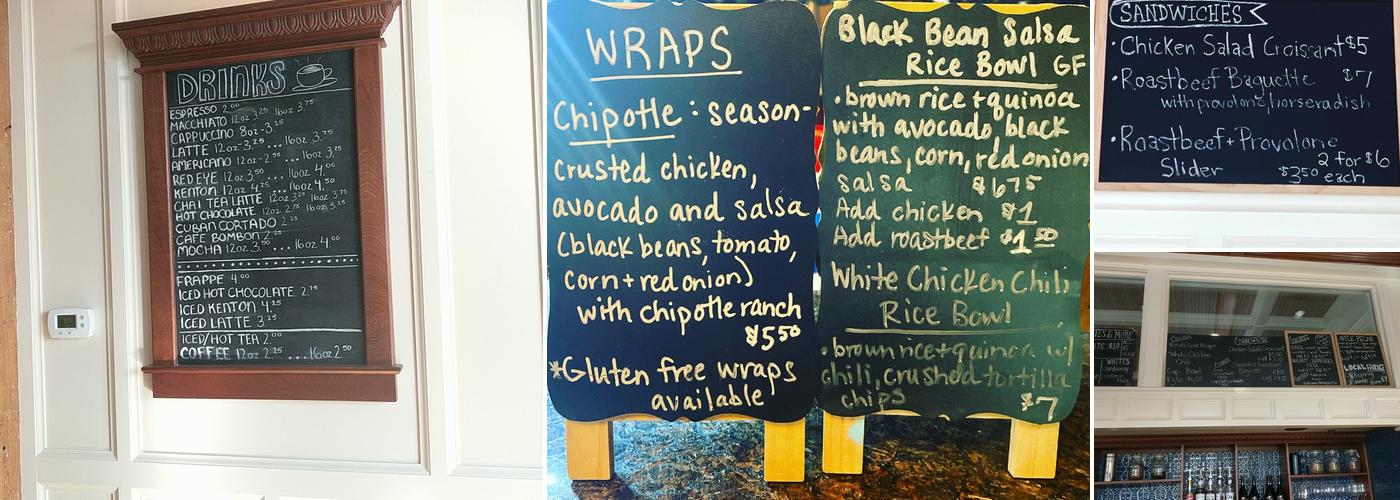 DRINKS
ESPRESSO 2.00
MACCHIATO 12oz 3.25 16oz 3.75
CAPPUCCINO 8oz-3.25
LATTE 12oz-3.25 ... 16oz 3.75
AMERICANO 12oz-2.50 ... 16oz 3.25
RED EYE 12oz 3.50 ... 16oz 4.00
KENTON 12oz 4.25 ... 16oz 4.50
CHAI TEA LATTE 12oz 3.25 16oz 3.75
HOT CHOCOLATE 12oz 2.75 16oz 3.25
CUBAN CORTADO 2.25
CAFE BOMBON 2.25
MOCHA 12oz 3.50 ... 16oz 4.00
FRAPPE 4.00
ICED HOT CHOCOLATE 2.75
ICED KENTON 4.25
ICED LATTE 3.25
ICED/HOT TEA 2.00
COFFEE 12oz 2.25 ... 16oz 2.50
WRAPS
Chipotle : season-
crusted chicken,
avocado and salsa
(black beans, tomato,
corn + red onion)
with chipotle ranch
$5.50
*Gluten free wraps
available
Black Bean Salsa
Rice Bowl GF
• brown rice + quinoa
with avocado, black
beans, corn, red onion
salsa $6.75
Add chicken $1
Add roastbeef $1.50
White Chicken Chili
Rice Bowl
• brown rice + quinoa w/
chili, crushed tortilla
chips $7
SANDWICHES
• Chicken Salad Croissant $5
• Roastbeef Baguette $7
with provolone, horseradish
• Roastbeef + Provolone
Slider 2 for $6
$3.50 each
& MORE
WHITES
White Chicken
Chili
Cup Bowl
LOCAL